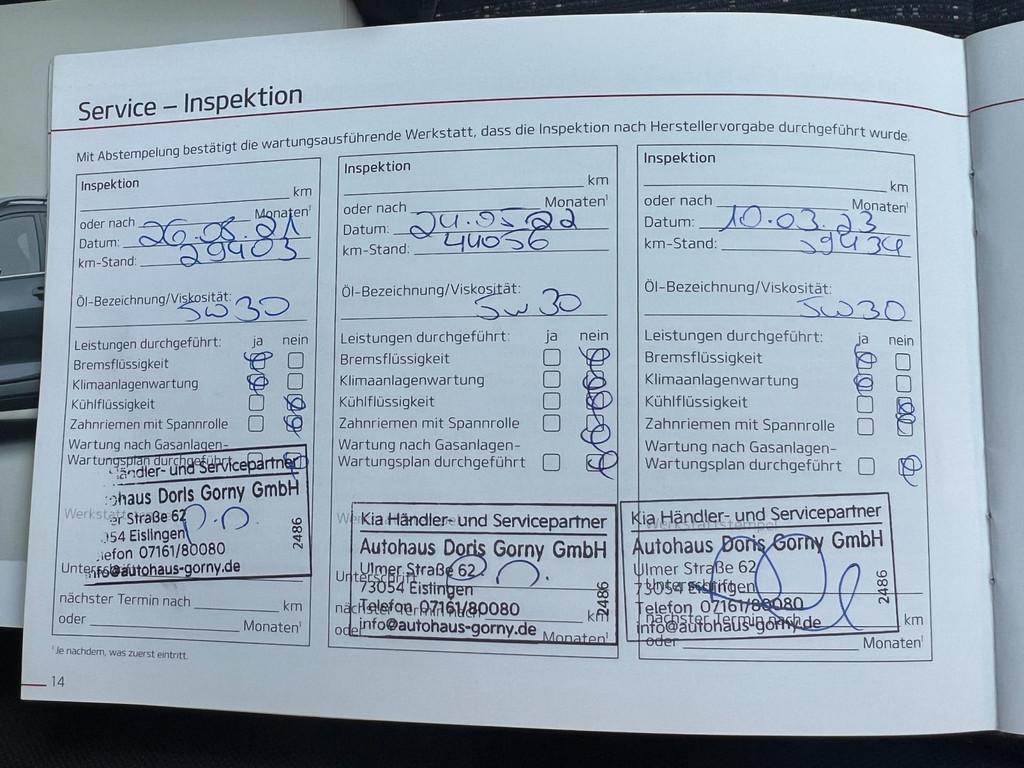 Service – Inspektion
Mit Abstempelung bestätigt die wartungsausführende Werkstatt, dass die Inspektion nach Herstellervorgabe durchgeführt wurde.
Inspektion
km
oder nach Monaten¹
Datum: 26.08.21
km-Stand: 29403
Öl-Bezeichnung/Viskosität:
5W30
Leistungen durchgeführt: ja nein
Bremsflüssigkeit
Klimaanlagenwartung
Kühlflüssigkeit
Zahnriemen mit Spannrolle
Wartung nach Gasanlagen-
Wartungsplan durchgeführt
Händler- und Servicepartner
ohaus Doris Gorny GmbH
er Straße 62
054 Eislingen
efon 07161/80080
info@autohaus-gorny.de
2486
nächster Termin nach km
oder Monaten¹
Inspektion
km
oder nach Monaten¹
Datum: 24.05.22
km-Stand: 44056
Öl-Bezeichnung/Viskosität:
5W30
Leistungen durchgeführt: ja nein
Bremsflüssigkeit
Klimaanlagenwartung
Kühlflüssigkeit
Zahnriemen mit Spannrolle
Wartung nach Gasanlagen-
Wartungsplan durchgeführt
Kia Händler- und Servicepartner
Autohaus Doris Gorny GmbH
Ulmer Straße 62
Unterschrift
73054 Eislingen
Telefon 07161/80080
nächster Termin nach km
info@autohaus-gorny.de
2486
oder Monaten¹
Inspektion
km
oder nach Monaten¹
Datum: 10.03.23
km-Stand: 59434
Öl-Bezeichnung/Viskosität:
5W30
Leistungen durchgeführt: ja nein
Bremsflüssigkeit
Klimaanlagenwartung
Kühlflüssigkeit
Zahnriemen mit Spannrolle
Wartung nach Gasanlagen-
Wartungsplan durchgeführt
Kia Händler- und Servicepartner
Werkstattstempel
Autohaus Doris Gorny GmbH
Ulmer Straße 62
Unterschrift
73054 Eislingen
Telefon 07161/80080
nächster Termin nach km
info@autohaus-gorny.de
2486
oder Monaten¹
¹Je nachdem, was zuerst eintritt.
14